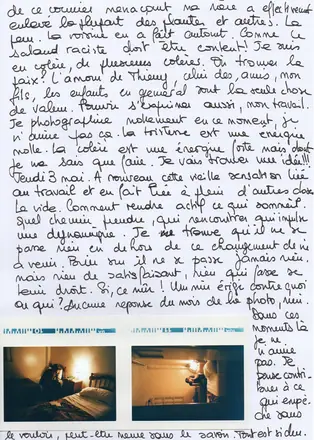 de ce courrier menaçant ma mère a effectivement
enlevé la plupart des plantes et autres. La
peur. La voisine en a fait autant. Comme ce
salaud raciste doit être content! Je suis
en colère, de plusieurs colères. Où trouver la
paix? L'amour de Thierry, celui des amis, mon
fils, les enfants en général sont la seule chose
de valeur. Pouvoir s'exprimer aussi, mon travail.
Je photographie mollement en ce moment, je
n'aime pas ça. La tristesse est une énergie
molle. La colère est une énergie forte mais dont
je ne sais que faire. Je vais trouver une idée!!!
Jeudi 3 mai. A nouveau cette vieille sensation liée
au travail et en fait liée à plein d'autres choses
La vide. Comment rendre actif ce qui sommeil.
Quel chemin prendre, qui rencontrer qui impulse
une dynamique. Je trouve qu'il ne se
passe rien en dehors de ce changement de vie
à venir. Paris sur il ne se passe jamais rien.
mais rien de satisfaisant, rien qui fasse se
tenir droit. Si, ce mur! Un mur érigé contre quoi
ou qui? Aucune réponse du mois de la photo, rien.
Dans ces
moments là
je ne
m'aime
pas. Je
pense contri-
buer à ce
qui empê-
che sans
le vouloir, peut-être même sans le savoir. Tout est si dur.